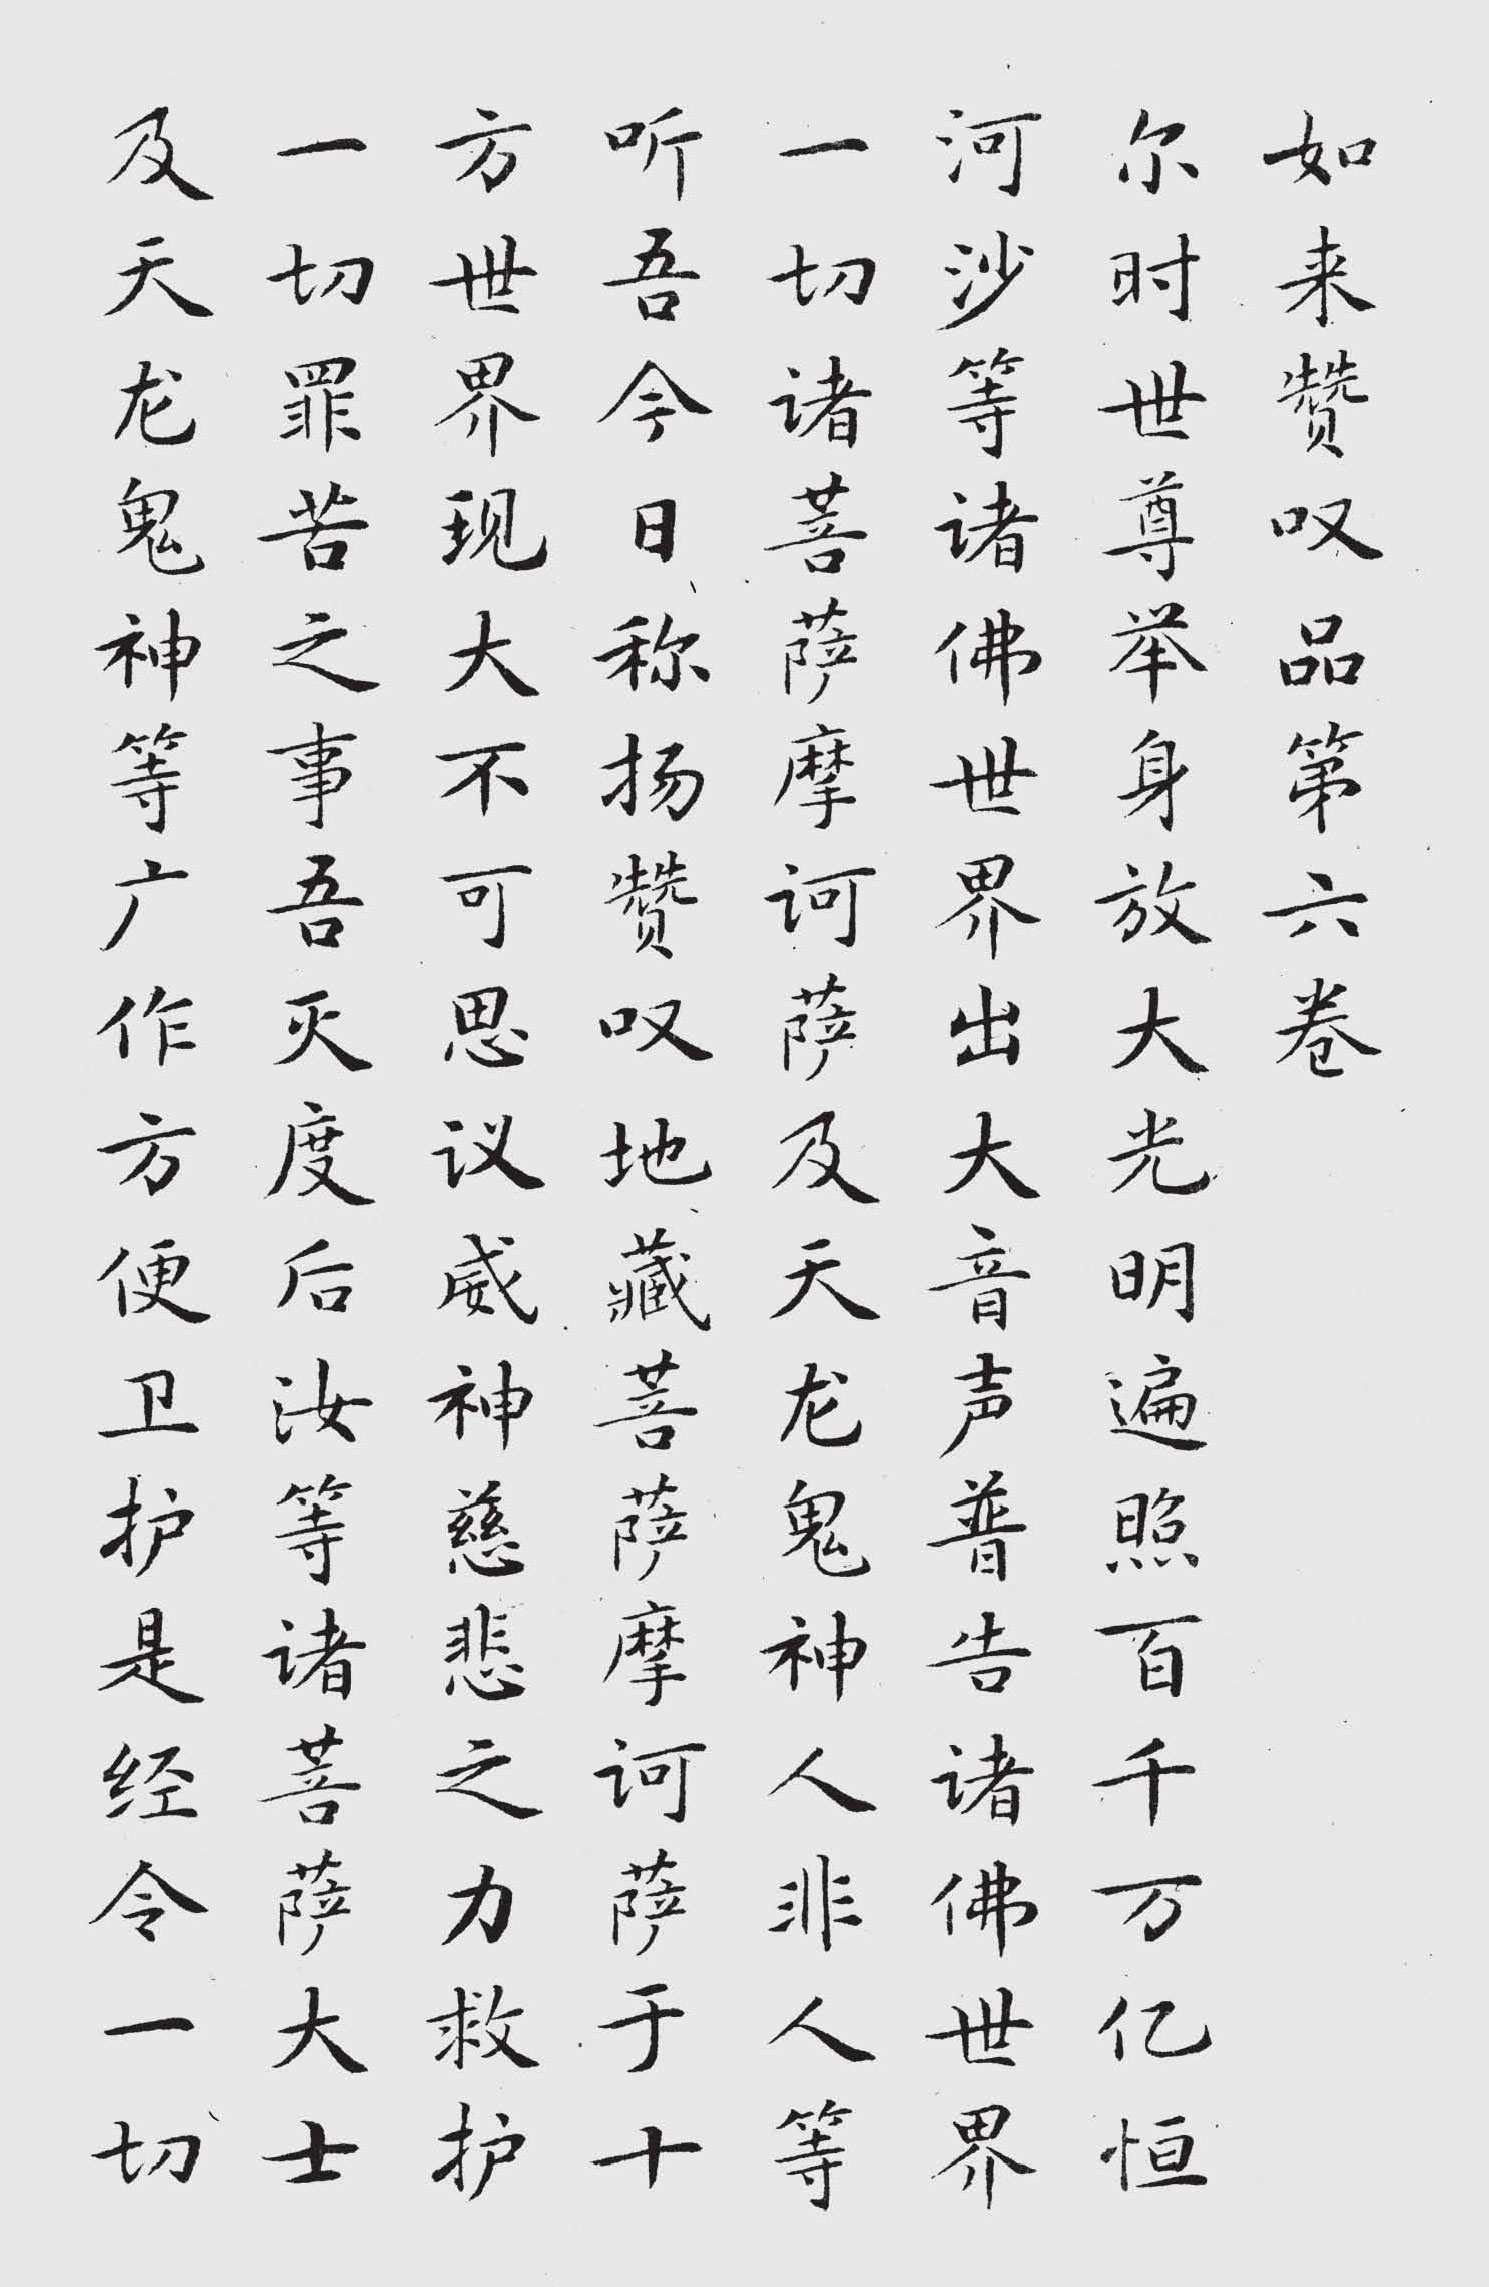 如来赞叹品第六卷
尔时世尊举身放大光明遍照百千万亿恒
河沙等诸佛世界出大音声普告诸佛世界
一切诸菩萨摩诃萨及天龙鬼神人非人等
听吾今日称扬赞叹地藏菩萨摩诃萨于十
方世界现大不可思议威神慈悲之力救护
一切罪苦之事吾灭度后汝等诸菩萨大士
及天龙鬼神等广作方便卫护是经令一切